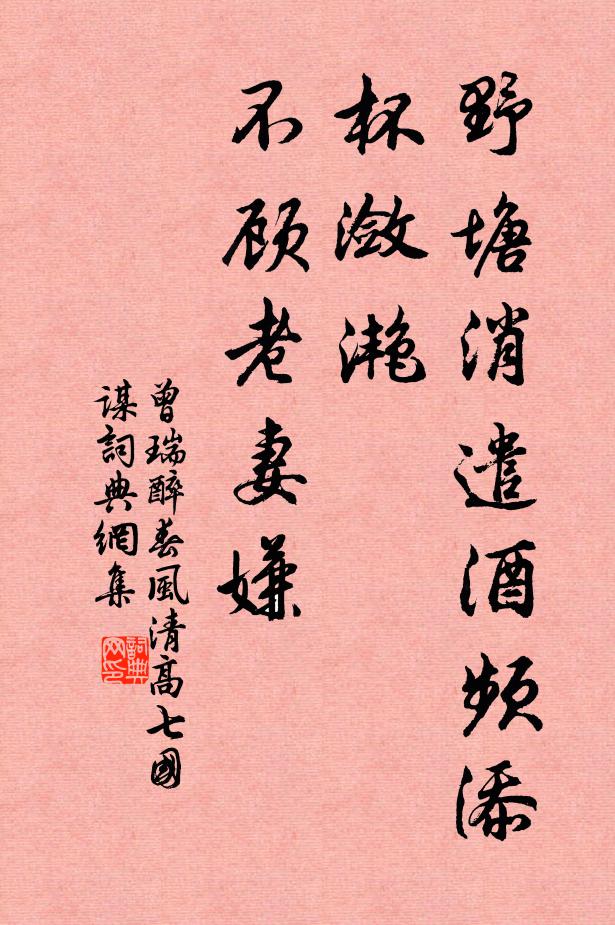 野塘消遣酒频添
杯潋滟
不顾老妻嫌
曾瑞醉春風清高七國
谋詞典網集
詞典网印